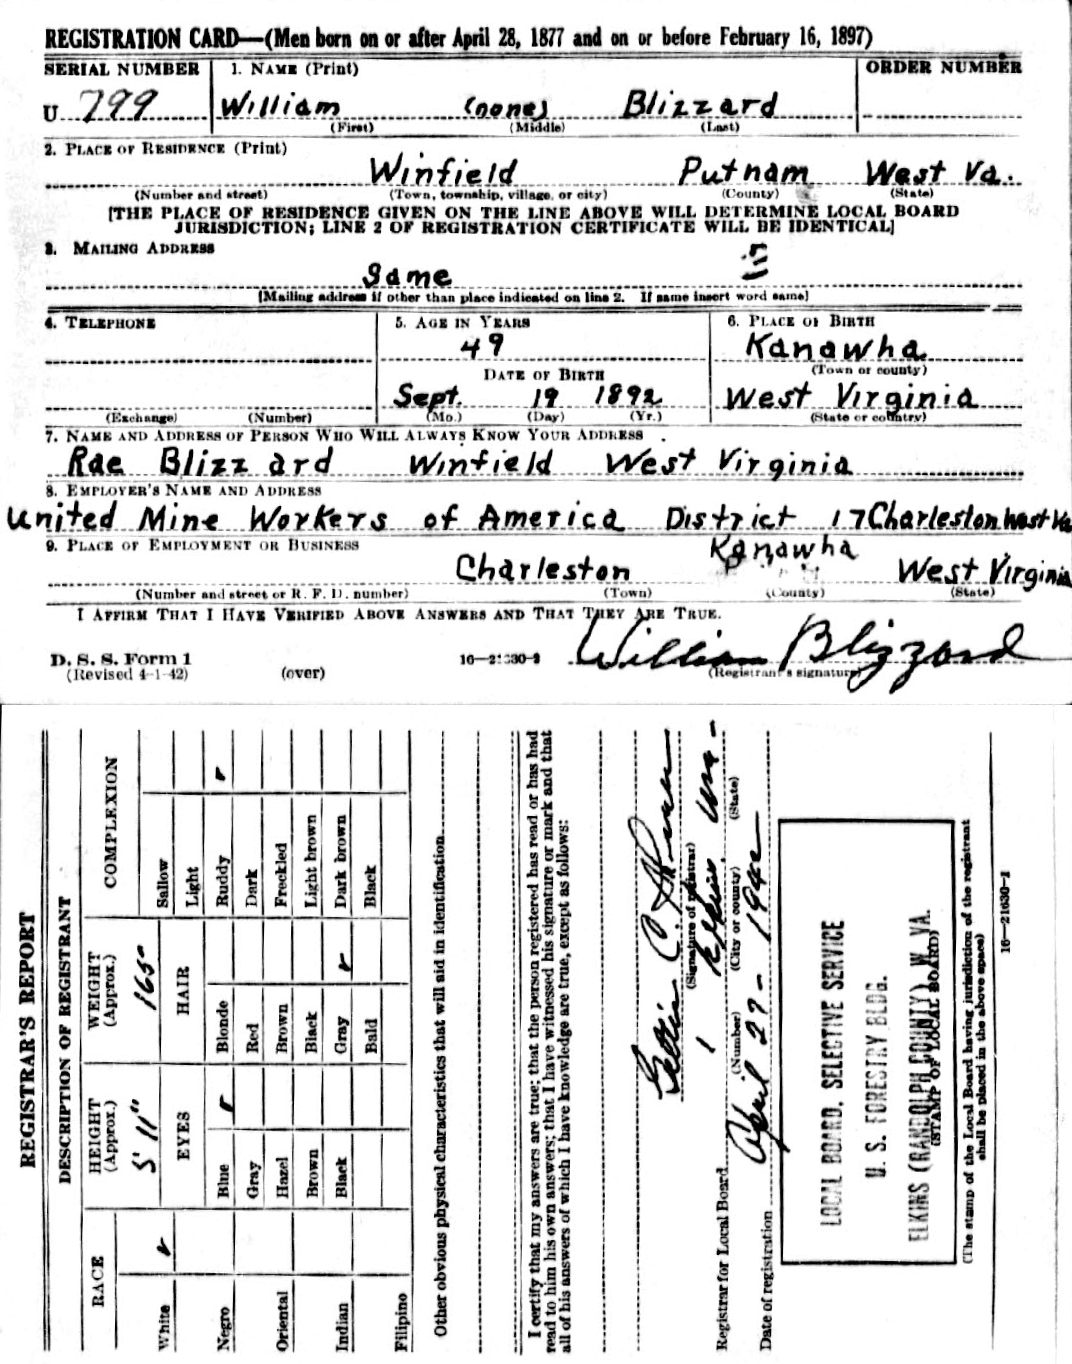 REGISTRATION CARD—(Men born on or after April 28, 1877 and on or before February 16, 1897)
SERIAL NUMBER 1. NAME (Print) ORDER NUMBER
U 799 William (none) Blizzard
(First) (Middle) (Last)
2. PLACE OF RESIDENCE (Print)
Winfield Putnam West Va.
(Number and street) (Town, township, village, or city) (County) (State)
[THE PLACE OF RESIDENCE GIVEN ON THE LINE ABOVE WILL DETERMINE LOCAL BOARD
JURISDICTION; LINE 2 OF REGISTRATION CERTIFICATE WILL BE IDENTICAL]
3. MAILING ADDRESS
Same
[Mailing address if other than place indicated on line 2. If same insert word same]
4. TELEPHONE 5. AGE IN YEARS 6. PLACE OF BIRTH
49 Kanawha
DATE OF BIRTH (Town or county)
Sept. 19 1892 West Virginia
(Exchange) (Number) (Mo.) (Day) (Yr.) (State or country)
7. NAME AND ADDRESS OF PERSON WHO WILL ALWAYS KNOW YOUR ADDRESS
Rae Blizzard Winfield West Virginia
8. EMPLOYER'S NAME AND ADDRESS
United Mine Workers of America District 17 Charleston West Va
9. PLACE OF EMPLOYMENT OR BUSINESS
Charleston Kanawha West Virginia
(Number and street or R. F. D. number) (Town) (County) (State)
I AFFIRM THAT I HAVE VERIFIED ABOVE ANSWERS AND THAT THEY ARE TRUE.
William Blizzard
D. S. S. Form 1 (over) 16—21630-2 (Registrant's signature)
(Revised 4-1-42)
REGISTRAR'S REPORT
DESCRIPTION OF REGISTRANT
RACE HEIGHT (Approx.) WEIGHT (Approx.) COMPLEXION
5' 11" 165
White Sallow
EYES HAIR Light
Negro Blue Blonde Ruddy
Gray Red Dark
Oriental Hazel Brown Freckled
Brown Black Light brown
Indian Black Gray Dark brown
Bald Black
Filipino
Other obvious physical characteristics that will aid in identification
I certify that my answers are true; that the person registered has read or has had
read to him his own answers; that I have witnessed his signature or mark and that
all of his answers of which I have knowledge are true, except as follows:
(Signature of registrar)
Registrar for Local Board 1
(Number) (City or county) (State)
Date of registration April 27 - 1942
LOCAL BOARD. SELECTIVE SERVICE
U. S. FORESTRY BLDG.
ELKINS (RANDOLPH COUNTY) W. VA.
(STAMP OF LOCAL BOARD)
(The stamp of the Local Board having jurisdiction of the registrant
shall be placed in the above space)
16—21630-2